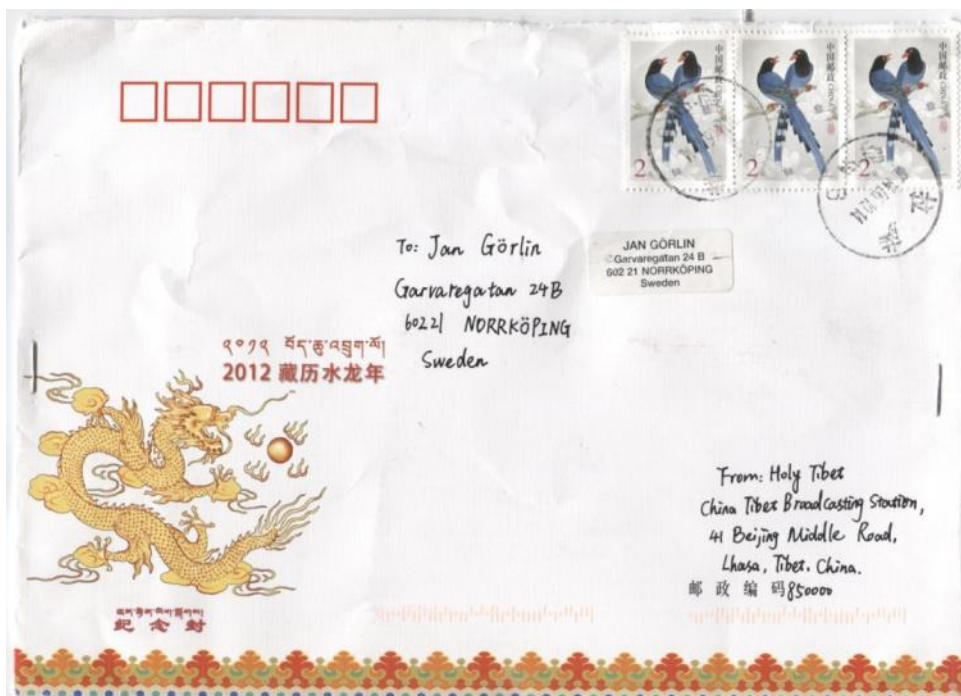 中国邮政
2
中国邮政
2
中国邮政
2
To: Jan Görlin
Garvaregatan 24B
60221 NORRKÖPING
Sweden
JAN GÖRLIN
Garvaregatan 24 B
602 21 NORRKÖPING
Sweden
༢༠༡༢ བོད་ཆུ་འབྲུག་ལོ།
2012 藏历水龙年
From: Holy Tibet
China Tibet BroadCasting Station,
41 Beijing Middle Road,
Lhasa, Tibet. China.
邮 政 编 码 850000
纪念封